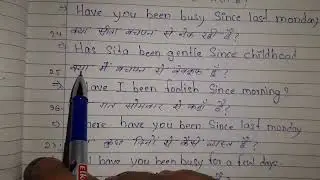 ⇒ Have you been busy Since last monday
24. क्या सीता बचपन से नेक रही है?
⇒ Has Sita been gentle Since childhood
25. क्या मैं बचपन से बेवकूफ हूँ?
⇒ Have I been foolish Since morning?
26. गत सोमवार से कहाँ हैं?
⇒ Where have you been Since last monday
27. कुछ दिनों से कैसे व्यस्त हैं?
have you been busy for a few days